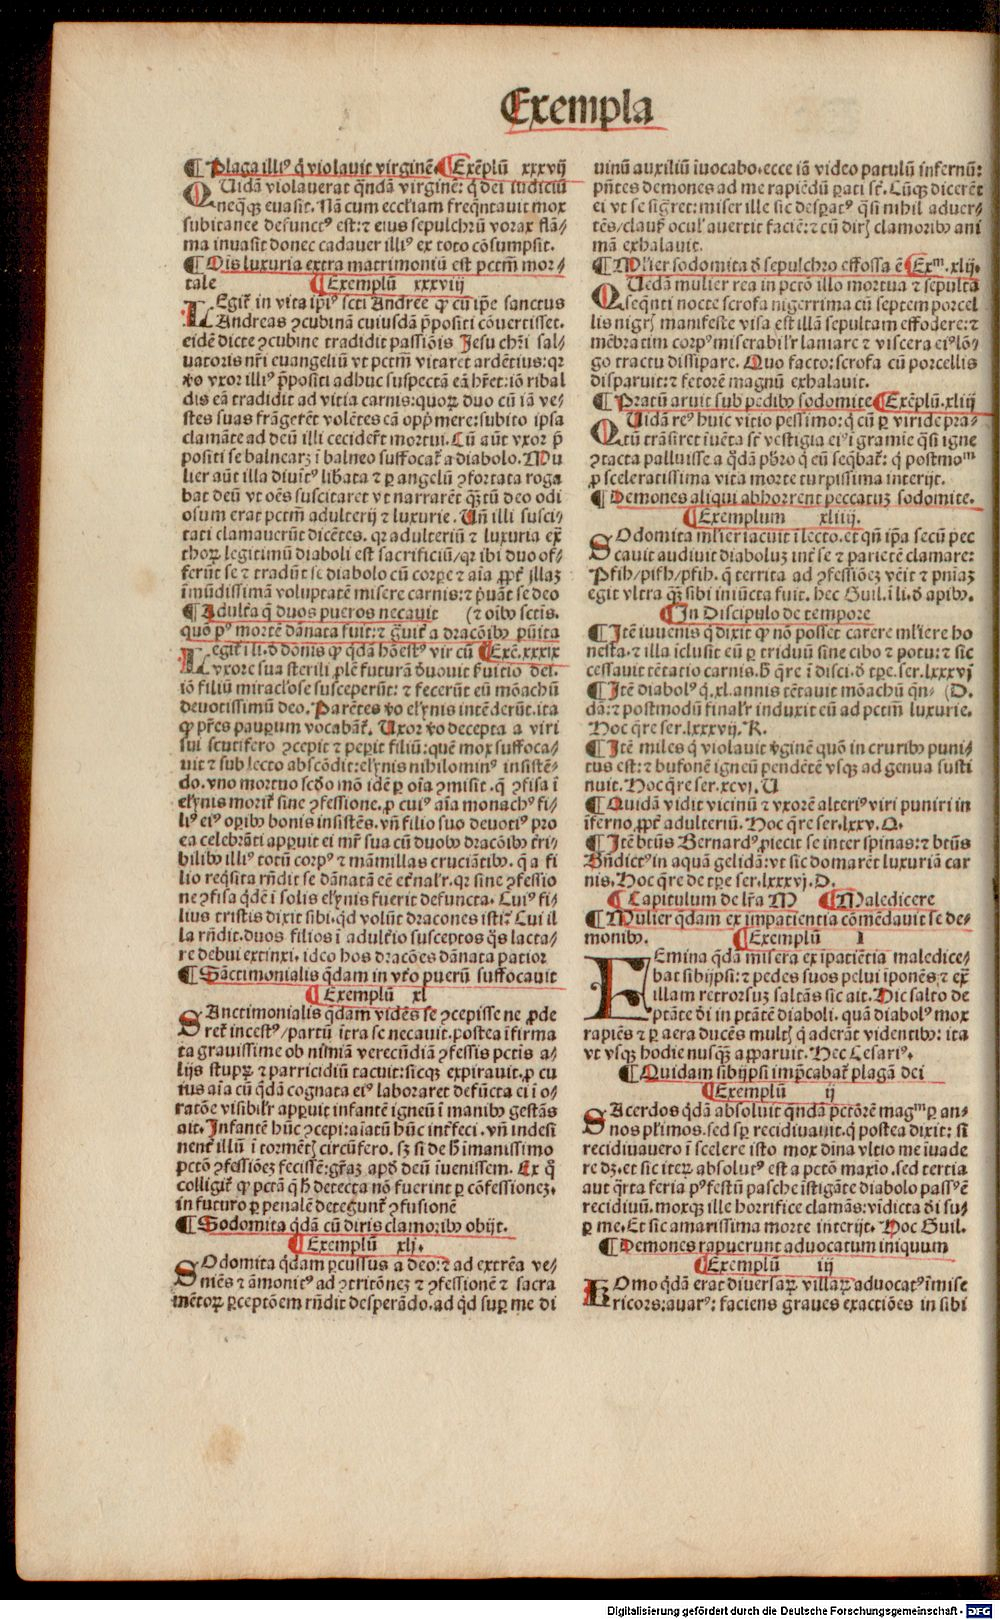 Exempla
¶ Plaga illiꝰ q̇ violauit virginē. ¶ Exēplū xxxvij
QUidā violauerat qͣndā virginē: q̇ dei iudiciū
neq̄ꝗ euasit. Nā cum eccl̓iam freqn̄tauit mox
subitanee defunctꝰ est: ⁊ eius sepulchrū vorax flā⸗
ma inuasit donec cadauer illiꝰ ex toto cōsumpsit.
¶ Ois luxuria extra matrimoniū est pctm̄ mor⸗
tale ¶ Exemplū xxxviij
LEgit̄ in vita ip̄iꝰ scti Andree ꝙ cū ip̄e sanctus
Andreas ꝯcubinā cuiusdā p̄positi cōuertisset.
eidē dicte ꝯcubine tradidit passiōis Jesu chr̄i sal⸗
uatoris nr̄i euangeliū vt pctm̄ vitaret ardētius: qꝛ
v̓o vxor illiꝰ p̄positi adhuc suspectā eā hr̄et: iō ribal
dis eā tradidit ad vitia carnis: quoꝝ duo cū iā ve⸗
stes suas frāgerēt volētes eā opp̄mere: subito ipsa
clamāte ad deū illi cecider̄t mortui. Cū aūt vxor p̄
positi se balnearꝫ ī balneo suffocat̄ a diabolo. Mu
lier aūt illa diuit̄ꝰ lib̄ata ⁊ ꝑ angelū ꝯfortata roga
bat deū vt oēs suscitaret vt narrarēt qͣꝫtū deo odi
osum erat pctm̄ adulterij ⁊ luxurie. Uñ illi susci⸗
tati clamauerūt dicētes. qꝛ adulteriū ⁊ luxuria ex̄
thoꝝ legitimū diaboli est sacrificiū/qꝛ ibi duo of⸗
ferūt se ⁊ tradūt se diabolo cū corpe ⁊ aīa ꝓpt̄ illaꝫ
īmūdissimā voluptatē misere carnis: ⁊ p̄uāt se deo
¶ Adult̓a q̄ duos pueros necauit (⁊ oībꝰ sctis.
quō pꝰ mortē dānata fuit: ⁊ g̓uit̓ a dracōibꝰ pūita
LEgit̄ ī li. d̓ donis ꝙ qͥdā hōestꝰ vir cū ¶ Exē. xxxix
vxore sua sterili ꝓlē futurā d̓uouit s̓uitio dei.
iō filiū miracl̓ose susceperūt: ⁊ fecerūt eū mōachū
deuotissimū deo. Parētes v̓o el̓ynis intēderūt. ita
ꝙ pr̄es pauꝑum vocabāt̄. Uxor v̓o decepta a viri
sui scutifero ꝯcepit ⁊ peꝑit filiū: quē mox suffoca⸗
uit ⁊ sub lecto abscōdit: el̓ynis nihilominꝰ insistē⸗
do. vno mortuo scd̓o mō idē ꝑ oīa ꝯmisit. q̄ ꝯfisa ī
el̓ynis morit̄ sine ꝯfessione. ꝓ cuiꝰ aīa monachꝰ fi⸗
liꝰ eiꝰ oꝑibꝰ bonis insistēs. vñ filio suo deuotiꝰ pro
ea celebrāti apꝑuit ei mr̄ sua cū duobꝰ dracōibꝰ t̓ri⸗
bilibꝰ illiꝰ totū corpꝰ ⁊ māmillas cruciātibꝰ. q̄ a fi
lio reqͥsita rn̄dit se dānatā eē et̓nal̓r. qꝛ sine ꝯfessio
ne ꝯfisa qͥdē ī solis el̓ynis fuerit defuncta. Cuiꝰ fi⸗
lius tristis dixit sibi. qd̓ volūt dracones isti? Cui il
la rn̄dit. duos filios ī adult̓io susceptos qͦs lacta⸗
re debui extinxi. ideo hos dracōes dānata patior
¶ Sāctimonialis qͣdam in vt̓o puerū suffocauit
¶ Exemplū xl
SAnctimonialis qͣdam vidēs se ꝯcepisse ne ꝓde
ret̄ incestꝰ/partū ītra se necauit. postea īfirma
ta grauissime ob nimiā verecūdiā ꝯfessis pctis a⸗
lijs stupꝝ ⁊ parricidiū tacuit: sicqꝫ expirauit. ꝓ cu
ius aīa cū qͣdā cognata eiꝰ laboraret defūcta ei ī o⸗
ratōe visibil̓r apꝑuit infantē igneū ī manibꝰ gestās
ait. Infantē hūc ꝯcepi: aīatū hūc int̓feci. vñ indesi
nent̓ illū ī tormētꝭ circūfero. sꝫ si de h̓ īmanissimo
pctō ꝯfessiōeꝫ fecissē: gr̄aꝫ apd̓ deū īuenissem. Ex q̊
colligit̄ ꝙ pctā q̄ h̓ detecta nō fuerint ꝑ cōfessioneꝫ.
in futuro ꝑ penalē detegunt̄ ꝯfusionē
¶ Sodomita qͥdā cū diris clamoribꝰ obijt.
¶ Exemplū xlj.
SOdomita qͥdam ꝑcussus a deo: ⁊ ad extrēa ve⸗
niēs ⁊ āmonitꝰ ad ꝯtritōneꝫ ⁊ ꝯfessionē ⁊ sacra
mētoꝝ ꝑceptōem rn̄dit desperādo. ad qd̓ suꝑ me di
uinū auxiliū īuocabo. ecce iā video patulū infernū:
pn̄tes demones ad me rapiēdū ꝑati st̄. Cūqꝫ dicerēt
ei vt se sigret: miser ille sic desꝑatꝰ qͣsi nihil aduer⸗
tēs/clauſ̓ ocul̓ auertit faciē: ⁊ cū dirꝭ clamoribꝰ ani
mā exhalauit.
¶ Ml̓ier sodomita d̓ sepulchro effossa ē ¶ Exᵐ. xlij.
QUedā mulier rea in pctō illo mortua ⁊ sepulta
seqn̄ti nocte scrofa nigerrima cū septem porcel
lis nigrꝭ manifeste visa est illā sepultam effodere: ⁊
mēbratim corpꝰ miserabil̓r laniare ⁊ viscera eiꝰ lō⸗
go tractu dissipare. Quo facto: scrofa cū porcellis
disparuit: ⁊ fetorē magnū exhalauit.
¶ Pratū aruit sub pedibꝰ sodomite ¶ Exēplū. xliij
QUidā reꝰ huic vitio pessimo: q̇ cū ꝑ viride pra⸗
tū trāsiret īuēta st̄ vestigia eiꝰ ī gramie qͣsi igne
ꝯtacta palluisse a qͦdā pb̓ro q̇ eū seqͣbat̄: q̇ postmoᵐ
ꝓ sceleratissima vita morte turpissima interijt.
¶ Demones aliqui abhorrent peccatuꝫ sodomite.
¶ Exemplum xliiij.
SOdomita ml̓ier iacuit ī lecto. et qn̄ ip̄a secū pec
cauit audiuit diaboluꝫ int̓ se ⁊ parietē clamare:
Pfih/pfih/pfih. q̄ territa ad ꝯfessiōeꝫ vēit ⁊ pn̄iaꝫ
egit vltra qͣꝫ sibi iniūcta fuit. hec Guil. ī li. d̓ apibꝰ.
¶ In Discipulo de tempore
¶ Itē iuuenis q̇ dixit ꝙ nō posset carere ml̓iere ho
nesta. ⁊ illa īclusit eū ꝑ triduū sine cibo ⁊ potu: ⁊ sic
cessauit tētatio carnis. h̓ qr̄e ī disci. d̓ tꝑe. ser. lxxxvj
¶ Itē diabolꝰ q̇. xl. annis tētauit mōachū qn̄⸗ (D.
dā: ⁊ postmodū final̓r induxit eū ad pctm̄ luxurie.
Hoc qr̄e ser. lxxxvij. K.
¶ Itē miles q̇ violauit v̓ginē quō in cruribꝰ puni⸗
tus est: ⁊ bufonē igneū ꝑendētē vsqꝫ ad genua susti
nuit. Hoc qr̄e ser. xcvj. U
¶ Quidā vidit vicinū ⁊ vxorē alteriꝰ viri puniri in
īferno. ꝓpt̄ adulteriū. Hoc qr̄e ser. lxxv. Q.
¶ Itē btūs Bernardꝰ ꝓiecit se inter spinas: ⁊ btūs
Bn̄dictꝰ in aquā gelidā: vt sic domarēt luxuriā car
nis. Hoc qr̄e de tꝑe ser. lxxxvj. D.
¶ Capitulum de lr̄a M ¶ Maledicere
¶ Mulier qͣdam ex impatientia cōmēdauit se de⸗
monibꝰ. ¶ Exemplū I
FEmina qͣdā misera ex īpatiētia maledice⸗
bat sibijpsi: ⁊ pedes suos pelui īponēs ⁊ ex̄
illam retrorsuꝫ saltās sic ait. Hic salto de
ptāte di in ptātē diaboli. quā diabolꝰ mox
rapiēs ⁊ ꝑ aera ducēs multꝭ q̇ aderāt videntibꝰ: ita
vt vsqꝫ hodie nusqͣꝫ apparuit. Hec Cesariꝰ.
¶ Quidam sibijpsi imp̄cabat̄ plagā dei
¶ Exemplū ij
SAcerdos qͥdā absoluit qͣndā pctōrē magᵐ ꝑ an⸗
nos pl̓imos. sed sꝑ recidiuauit. q̇ postea dixit: si
recidiuauero ī scelere isto mox diuina vltio me īuade
re dꝫ. et sic iteꝝ absolutꝰ est a pctō maxīo. sed tertia
aut qͣrta feria pꝰ festū pasche īstigāte diabolo passꝰ ē
recidiuū. moxqꝫ ille horrifice clamās: vidicta di su⸗
ꝑ me. Et sic amarissima morte interijt. Hoc Guil.
¶ Demones rapuerunt aduocatum iniquum
¶ Exemplū iij
HOmo qͥdā erat diuersaꝝ villaꝝ aduocatꝰ īmise
ricors: auarꝰ: faciens graues exactiōes in sibi
Digitalisierung gefördert durch die Deutsche Forschungsgemeinschaft - DFG